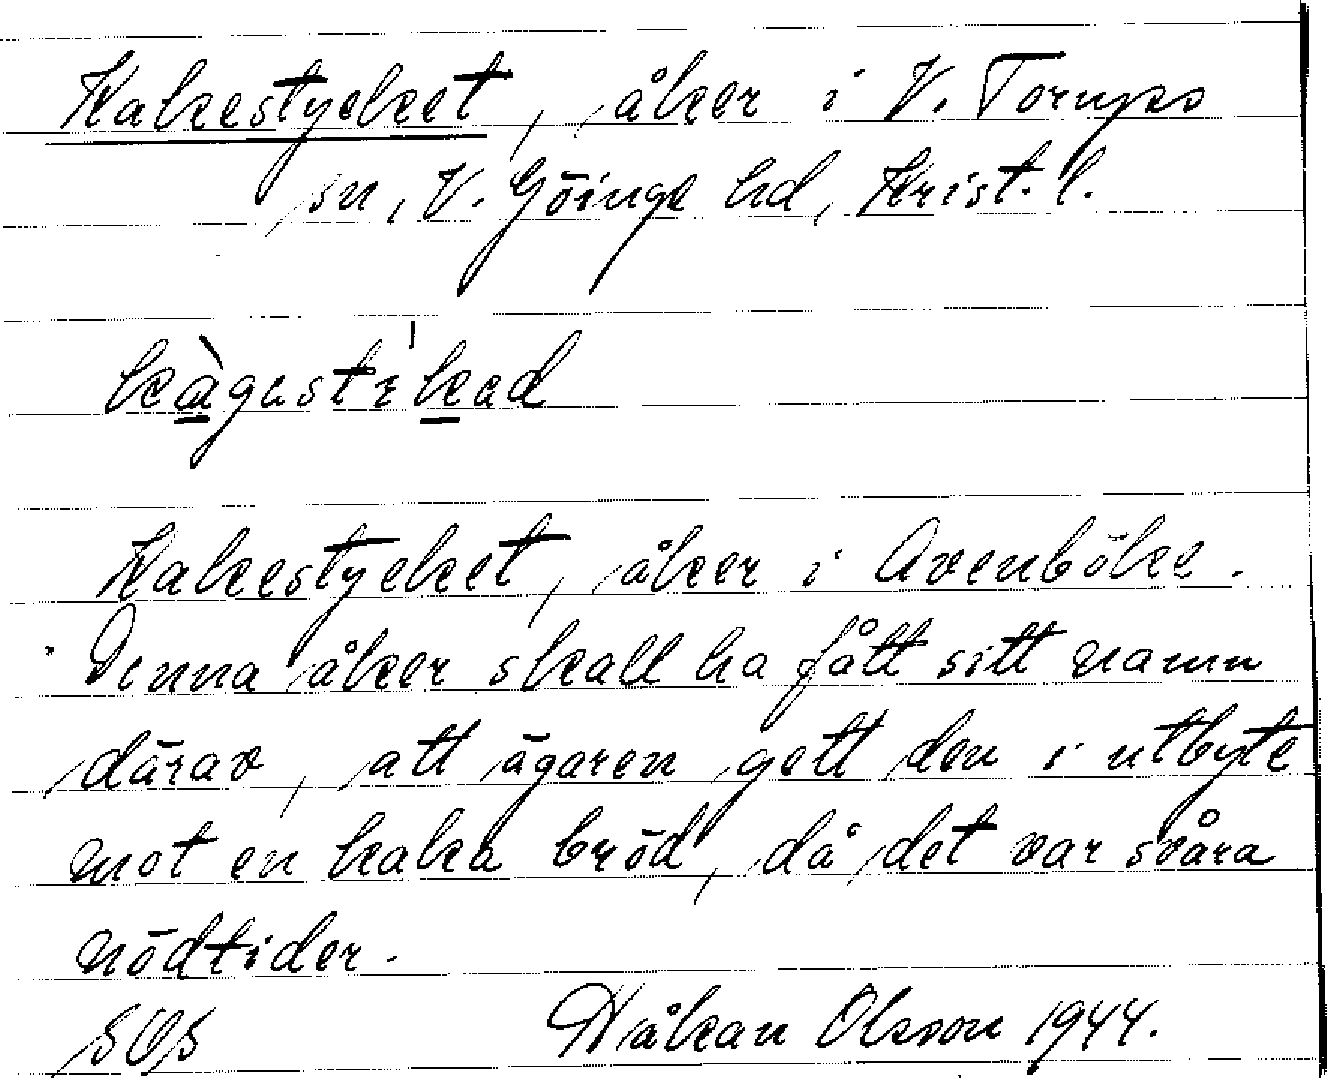 Kakestycket, åker i V. Torups
sn, V. Göinge hd, Krist. l.
kàgastìkad
Kakestycket, åker i Avenböke.
Denna åker skall ha fått sitt namn
därav, att ägaren gett den i utbyte
mot en kaka bröd, då det var svåra
nödtider.
SOS Håkan Olsson 1944.